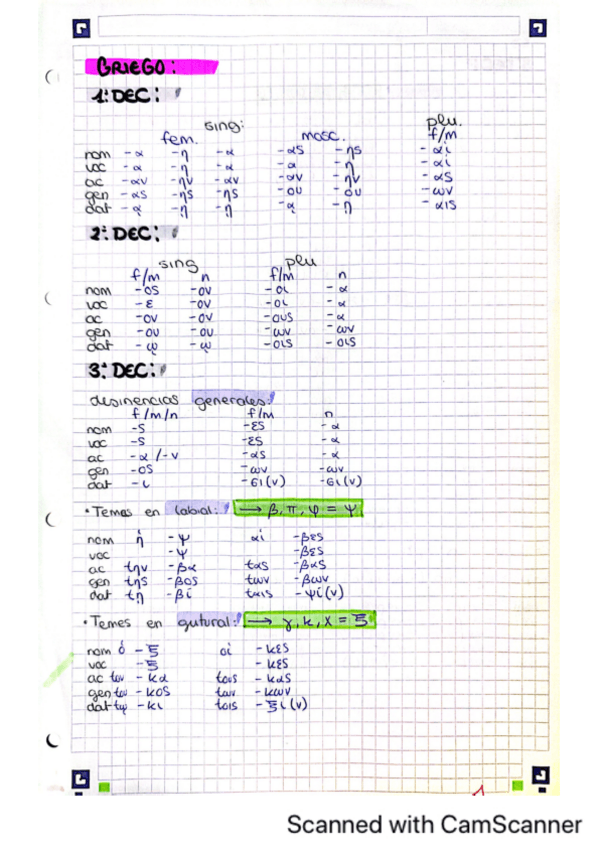 GRIEGO:
1ª DEC:
sing: plu.
fem. masc. f/m
nom -α -η -α -αs -ηs -αi
voc -α -η -α -α -η -αi
ac -αν -ην -αν -αν -ην -αs
gen -αs -ηs -ηs -ου -ου -ων
dat -ᾳ -ῃ -ῃ -ᾳ -ῃ -αιs
2ª DEC:
sing plu
f/m n f/m n
nom -os -ον -οι -α
voc -ε -ον -οι -α
ac -ον -ον -ους -α
gen -ου -ου -ων -ων
dat -ῳ -ῳ -οιs -οιs
3ª DEC:
desinencias generales:
f/m/n f/m n
nom -s -εs -α
voc -s -εs -α
ac -α/-ν -αs -α
gen -os -ων -ων
dat -ι -σι(ν) -σι(ν)
• Temas en labial: → β, π, φ = ψ
nom ἡ -ψ αἱ -βεs
voc -ψ -βεs
ac την -βα ταs -βαs
gen τηs -βοs των -βων
dat τη -βι ταιs -ψι(ν)
• Temes en gutural: → γ, κ, χ = ξ
nom ὁ -ξ οἱ -κεs
voc -ξ -κεs
ac τον -κα τους -καs
gen του -κοs των -κων
dat τῳ -κι τοιs -ξι(ν)
Scanned with CamScanner